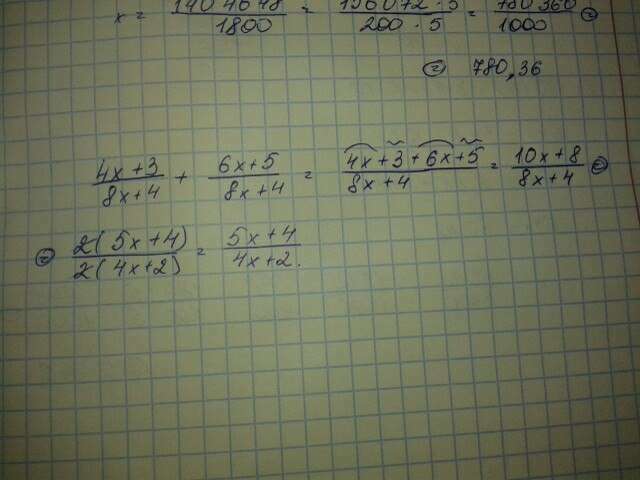 x = 1404648/1800 = 156072 · 5/200 · 5 = 780360/1000 =
= 780,36
4x+3/8x+4 + 6x+5/8x+4 = 4x+3+6x+5/8x+4 = 10x+8/8x+4 =
= 2(5x+4)/2(4x+2) = 5x+4/4x+2.